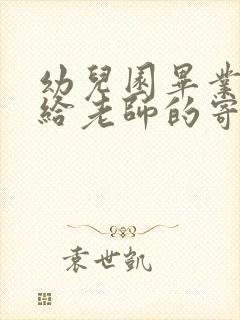 幼兒園畢業
給老師的寄
袁世凱